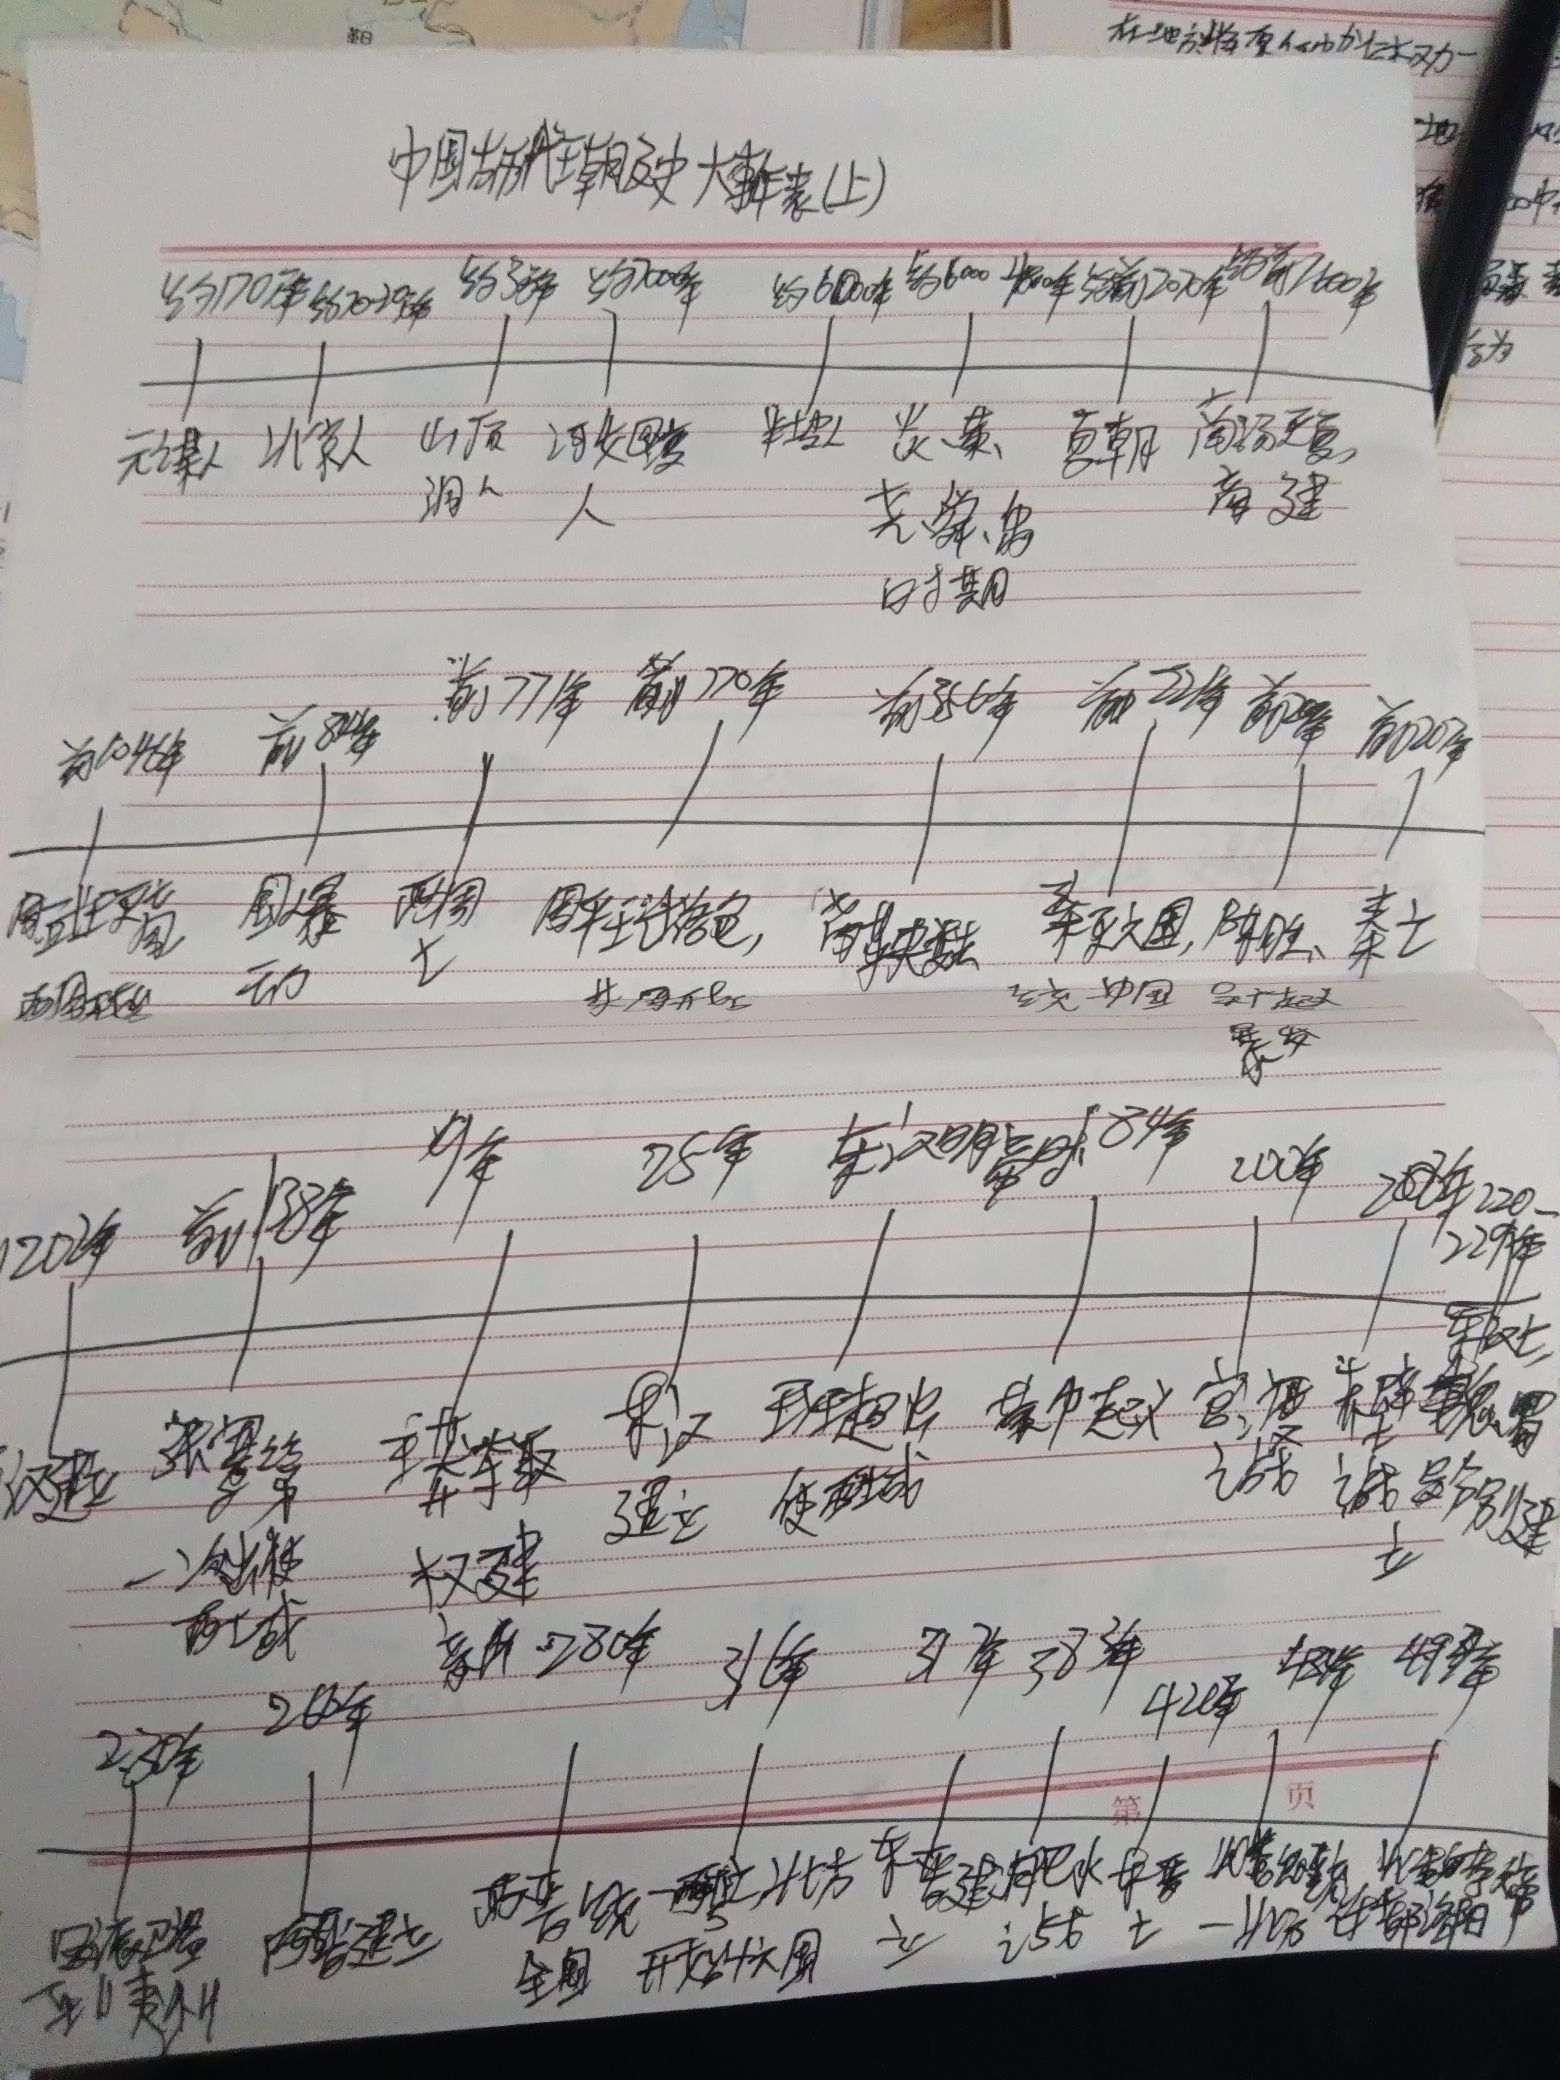 中国古历代王朝历史大事年表(上)
约170万年 约70-20万年 约3万年 约7000年 约6000年 约6000-4000年 约前2070年 约前1600年
元谋人 北京人 山顶 河姆渡 半坡人 炎、黄、 夏朝 商汤灭夏,
洞人 人 尧、舜、禹 商建
时期
前1046年 前841年 前771年 前770年 前356年 前221年 前209年 前207年
周武王灭商 国人暴 西周 周平王迁洛邑, 商鞅变法 秦灭六国, 陈胜、 秦亡
西周建立 动 亡 东周开始 统一中国 吴广起义
爆发
202年 前138年 9年 25年 东汉明帝时 184年 200年 208年 220-
229年
汉建立 张骞第 王莽夺取 东汉 班超出 黄巾起义 官渡 赤壁 东汉亡,
一次出使 权建 建立 使西域 之战 之战 魏、蜀
西域 新 吴分别建
立
230年 266年 280年 316年 317年 383年 420年 439年 494年
吴派卫温 西晋建立 西晋统一 西晋亡,北方 东晋建 淝水 东晋 北魏统 北魏孝文帝
到夷州 全国 开始十六国 立 之战 亡 一北方 迁都洛阳
第 页